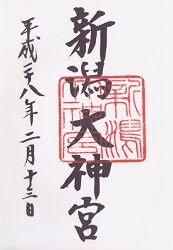 新潟大神宮
平成二八年二月十三日
新潟